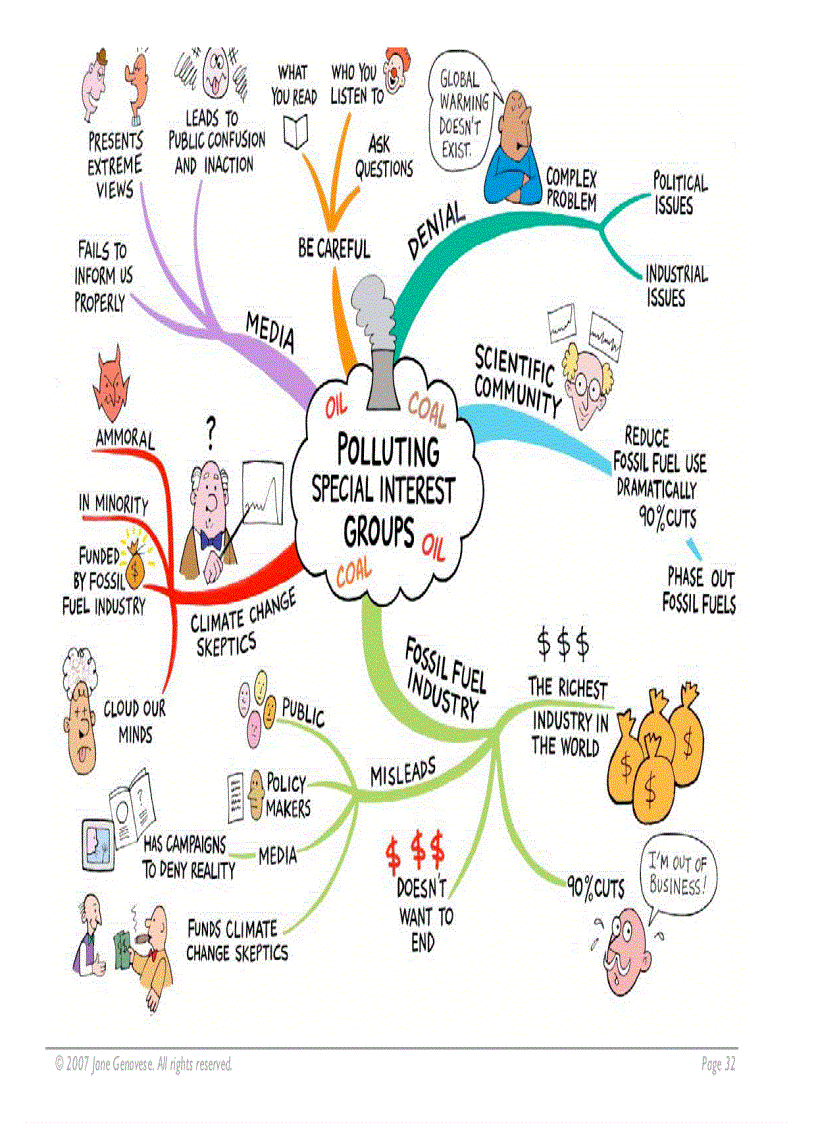 WHAT
YOU READ
WHO YOU
LISTEN TO
GLOBAL
WARMING
DOESN'T
EXIST.
PRESENTS
EXTREME
VIEWS
LEADS TO
PUBLIC CONFUSION
AND INACTION
ASK
QUESTIONS
COMPLEX
PROBLEM
POLITICAL
ISSUES
INDUSTRIAL
ISSUES
DENIAL
BE CAREFUL
FAILS TO
INFORM US
PROPERLY
MEDIA
SCIENTIFIC
COMMUNITY
REDUCE
FOSSIL FUEL USE
DRAMATICALLY
90% CUTS
PHASE OUT
FOSSIL FUELS
OIL
COAL
POLLUTING
SPECIAL INTEREST
GROUPS
OIL
COAL
AMMORAL
?
IN MINORITY
$
FUNDED
BY FOSSIL
FUEL INDUSTRY
CLIMATE CHANGE
SKEPTICS
CLOUD OUR
MINDS
FOSSIL FUEL
INDUSTRY
$ $ $
THE RICHEST
INDUSTRY IN
THE WORLD
$
$
$
$
PUBLIC
MISLEADS
POLICY
MAKERS
?
HAS CAMPAIGNS
TO DENY REALITY
MEDIA
FUNDS CLIMATE
CHANGE SKEPTICS
$ $ $
DOESN'T
WANT TO
END
90% CUTS
I'M OUT OF
BUSINESS!
© 2007 Jane Genovese. All rights reserved.
Page 32